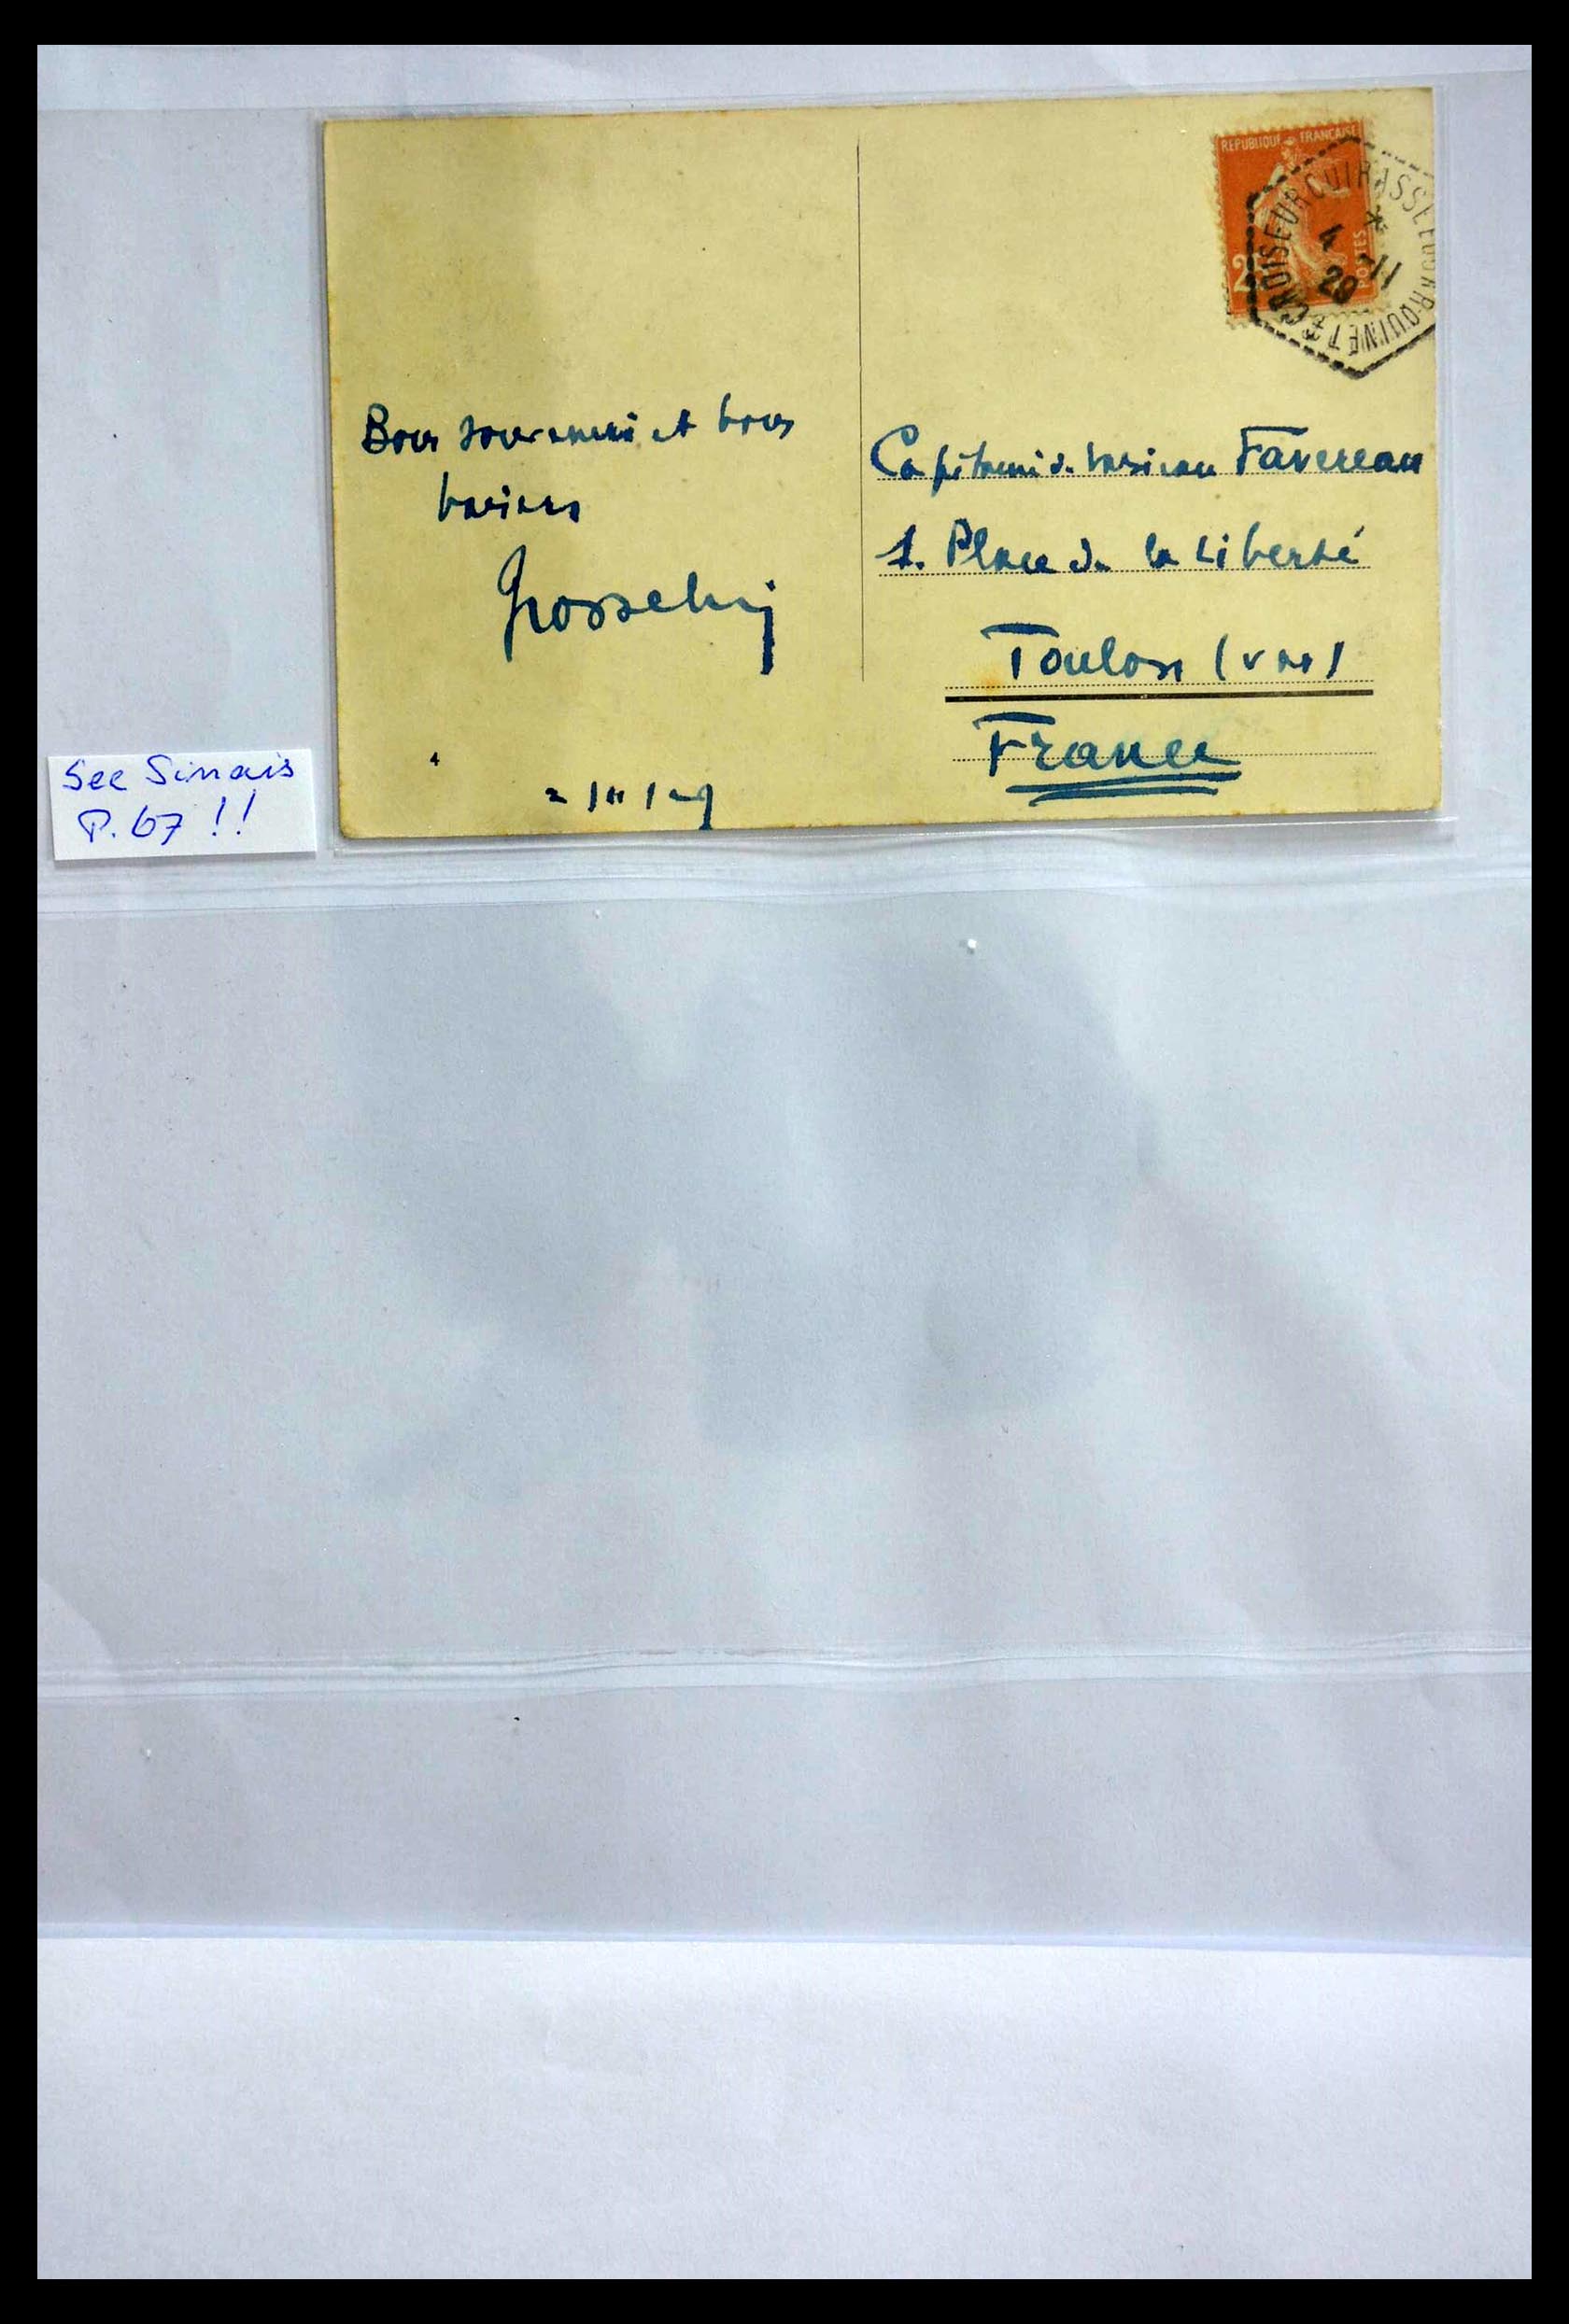 REPUBLIQUE FRANCAISE
POSTES
CROISEUR CUIRASSE EDGAR QUINET
4 -11
29
Bons souvenirs et bons
baisers
Capitaine de vaisseau Favereau
1. Place de la Liberté
Toulon (Var)
France
2/11/29
See Sinais
P. 67 !!